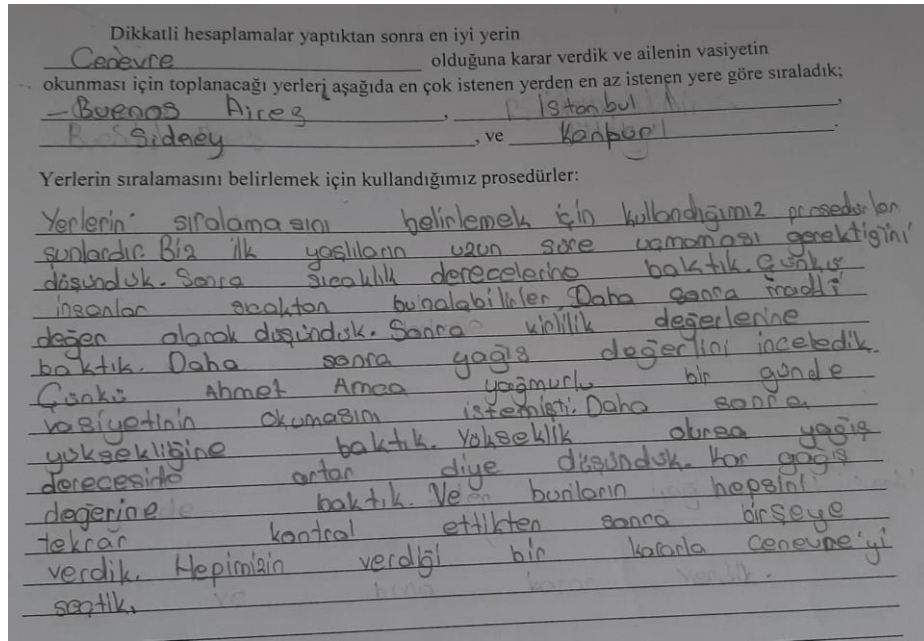 Dikkatli hesaplamalar yaptıktan sonra en iyi yerin
Cenevre olduğuna karar verdik ve ailenin vasiyetin
okunması için toplanacağı yerleri aşağıda en çok istenen yerden en az istenen yere göre sıraladık;
- Buenos Aires, İstanbul,
Sidney, ve Kanpur.
Yerlerin sıralamasını belirlemek için kullandığımız prosedürler:
Yerlerin sıralamasını belirlemek için kullandığımız prosedürler
şunlardır. Biz ilk yaşlıların uzun süre uçmaması gerektiğini
düşündük. Sonra sıcaklık derecelerine baktık. Çünkü
insanlar sıcaktan bunalabilirler. Daha sonra maddi
değer olarak düşündük. Sonra kirlilik değerlerine
baktık. Daha sonra yağış değerlini inceledik.
Çünkü Ahmet Amca yağmurlu bir günde
vasiyetinin okumasını istemişti. Daha sonra
yüksekliğine baktık. Yükseklik olursa yağış
derecesinde artar diye düşündük. Kar yağış
değerine baktık. Ve bunların hepsini
tekrar kontrol ettikten sonra birşeye
verdik. Hepimizin verdiği bir kararla Cenevre'yi
seçtik.